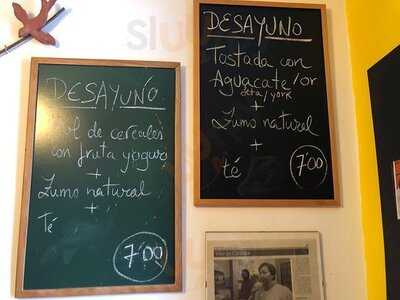 DESAYUNO
Bol de cereales
con fruta y yogur
+
Zumo natural
+
Té
7'00
DESAYUNO
Tostada con
Aguacate/or
+
Zumo natural
+
té
7'00